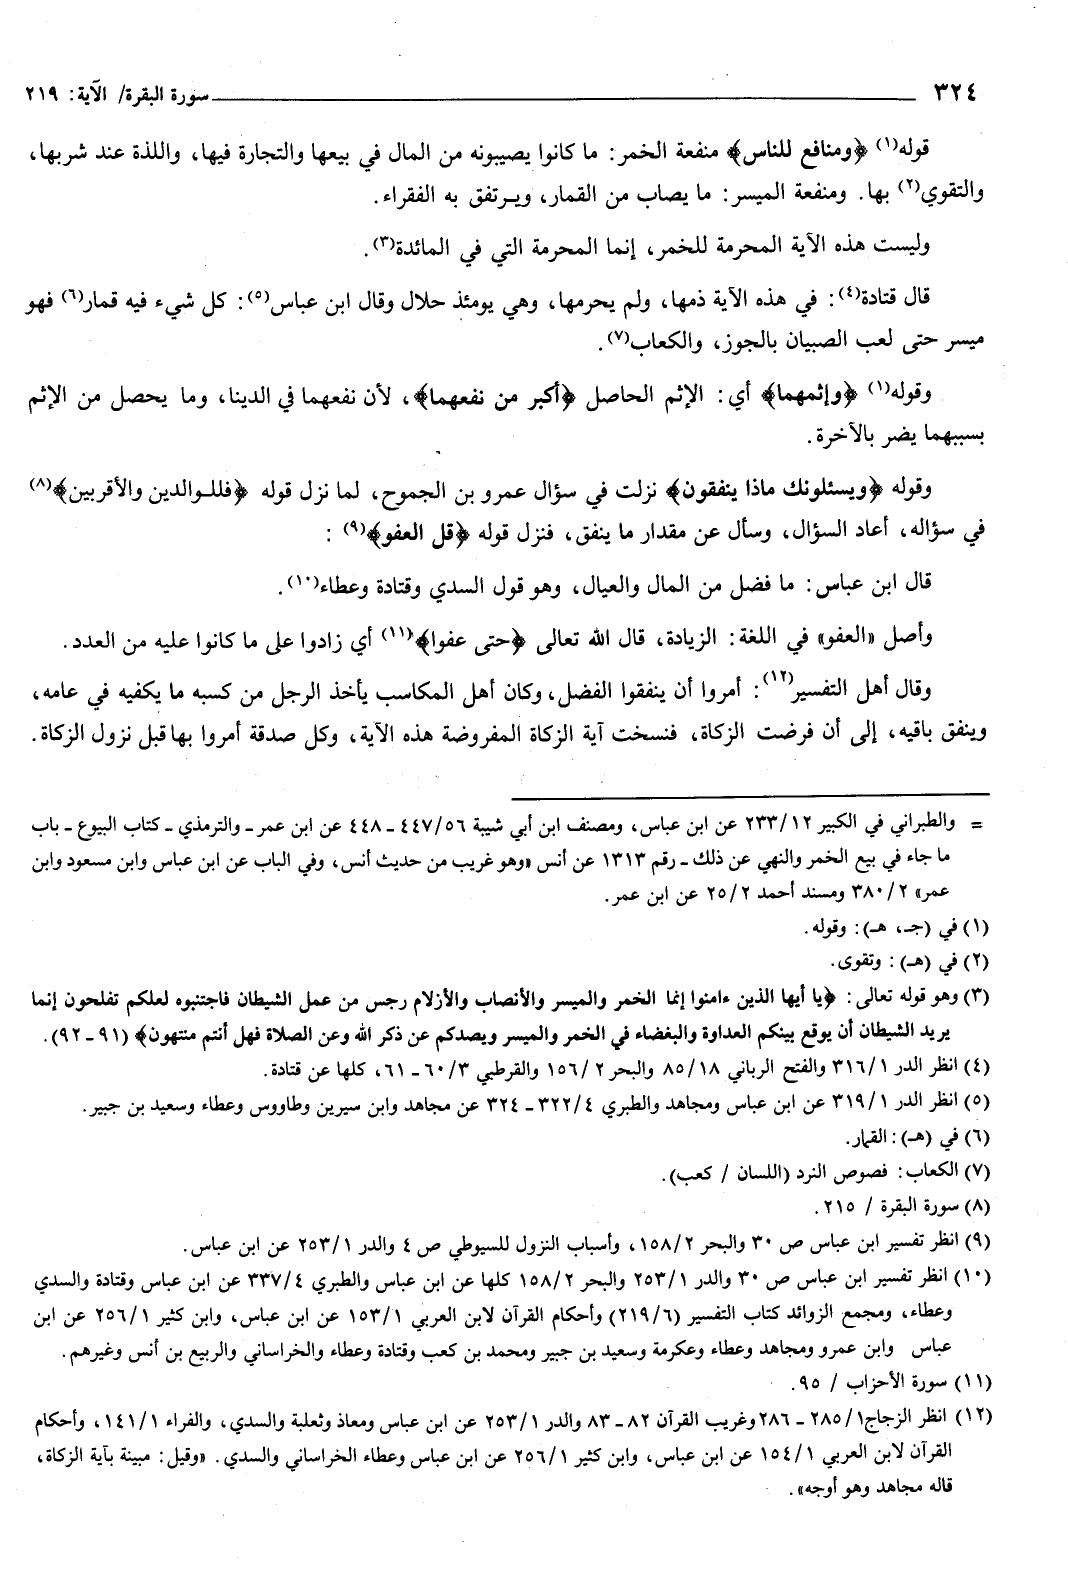 ٣٢٤ سورة البقرة/ الآية: ٢١٩
قوله(١) ﴿ومنافع للناس﴾ منفعة الخمر: ما كانوا يصيبونه من المال في بيعها والتجارة فيها، واللذة عند شربها،
والتقوي(٢) بها. ومنفعة الميسر: ما يصاب من القمار، ويرتفق به الفقراء.
وليست هذه الآية المحرمة للخمر، إنما المحرمة التي في المائدة(٣).
قال قتادة(٤): في هذه الآية ذمها، ولم يحرمها، وهي يومئذ حلال وقال ابن عباس(٥): كل شيء فيه قمار(٦) فهو
ميسر حتى لعب الصبيان بالجوز، والكعاب(٧).
وقوله(١) ﴿وإثمهما﴾ أي: الإثم الحاصل ﴿أكبر من نفعهما﴾، لأن نفعهما في الدينا، وما يحصل من الإثم
بسببهما يضر بالآخرة.
وقوله ﴿ويسئلونك ماذا ينفقون﴾ نزلت في سؤال عمرو بن الجموح، لما نزل قوله ﴿فللوالدين والأقربين﴾(٨)
في سؤاله، أعاد السؤال، وسأل عن مقدار ما ينفق، فنزل قوله ﴿قل العفو﴾(٩) :
قال ابن عباس: ما فضل من المال والعيال، وهو قول السدي وقتادة وعطاء(١٠).
وأصل «العفو» في اللغة: الزيادة، قال الله تعالى ﴿حتى عفوا﴾(١١) أي زادوا على ما كانوا عليه من العدد.
وقال أهل التفسير(١٢): أمروا أن ينفقوا الفضل، وكان أهل المكاسب يأخذ الرجل من كسبه ما يكفيه في عامه،
وينفق باقيه، إلى أن فرضت الزكاة، فنسخت آية الزكاة المفروضة هذه الآية، وكل صدقة أمروا بها قبل نزول الزكاة.
= والطبراني في الكبير ٢٣٣/١٢ عن ابن عباس، ومصنف ابن أبي شيبة ٤٤٧/٥٦ ـ ٤٤٨ عن ابن عمر ـ والترمذي ـ كتاب البيوع ـ باب
ما جاء في بيع الخمر والنهي عن ذلك ـ رقم ١٣١٣ عن أنس «وهو غريب من حديث أنس، وفي الباب عن ابن عباس وابن مسعود وابن
عمر» ٣٨٠/٢ ومسند أحمد ٢٥/٢ عن ابن عمر.
(١) في (جـ، هـ): وقوله.
(٢) في (هـ): وتقوى.
(٣) وهو قوله تعالى: ﴿يا أيها الذين ءامنوا إنما الخمر والميسر والأنصاب والأزلام رجس من عمل الشيطان فاجتنبوه لعلكم تفلحون إنما
يريد الشيطان أن يوقع بينكم العداوة والبغضاء في الخمر والميسر ويصدكم عن ذكر الله وعن الصلاة فهل أنتم منتهون﴾ (٩١ ـ ٩٢).
(٤) انظر الدر ٣١٦/١ والفتح الرباني ٨٥/١٨ والبحر ١٥٦/٢ والقرطبي ٦٠/٣ ـ ٦١، كلها عن قتادة.
(٥) انظر الدر ٣١٩/١ عن ابن عباس ومجاهد والطبري ٣٢٢/٤ ـ ٣٢٤ عن مجاهد وابن سيرين وطاووس وعطاء وسعيد بن جبير.
(٦) في (هـ): القمار.
(٧) الكعاب: فصوص النرد (اللسان / كعب).
(٨) سورة البقرة / ٢١٥.
(٩) انظر تفسير ابن عباس ص ٣٠ والبحر ١٥٨/٢، وأسباب النزول للسيوطي ص ٤ والدر ٢٥٣/١ عن ابن عباس.
(١٠) انظر تفسير ابن عباس ص ٣٠ والدر ٢٥٣/١ والبحر ١٥٨/٢ كلها عن ابن عباس والطبري ٣٣٧/٤ عن ابن عباس وقتادة والسدي
وعطاء، ومجمع الزوائد كتاب التفسير (٢١٩/٦) وأحكام القرآن لابن العربي ١٥٣/١ عن ابن عباس، وابن كثير ٢٥٦/١ عن ابن
عباس وابن عمرو ومجاهد وعطاء وعكرمة وسعيد بن جبير ومحمد بن كعب وقتادة وعطاء والخراساني والربيع بن أنس وغيرهم.
(١١) سورة الأحزاب / ٩٥.
(١٢) انظر الزجاج ٢٨٥/١ ـ ٢٨٦ وغريب القرآن ٨٢ ـ ٨٣ والدر ٢٥٣/١ عن ابن عباس ومعاذ وثعلبة والسدي، والفراء ١٤١/١، وأحكام
القرآن لابن العربي ١٥٤/١ عن ابن عباس، وابن كثير ٢٥٦/١ عن ابن عباس وعطاء الخراساني والسدي. «وقيل: مبينة بآية الزكاة،
قاله مجاهد وهو أوجه».